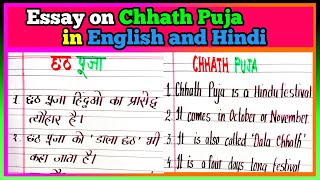 Essay on Chhath Puja
in English and Hindi
छठ पूजा
1. छठ पूजा हिंदुओं का प्रसिद्ध
त्यौहार है।
2. छठ पूजा को 'डाला छठ' भी
कहा जाता है।
CHHATH PUJA
1. Chhath Puja is a Hindu festival.
2. It comes in October or November.
3. It is also called 'Dala Chhath'.
4. It is a four days long festival